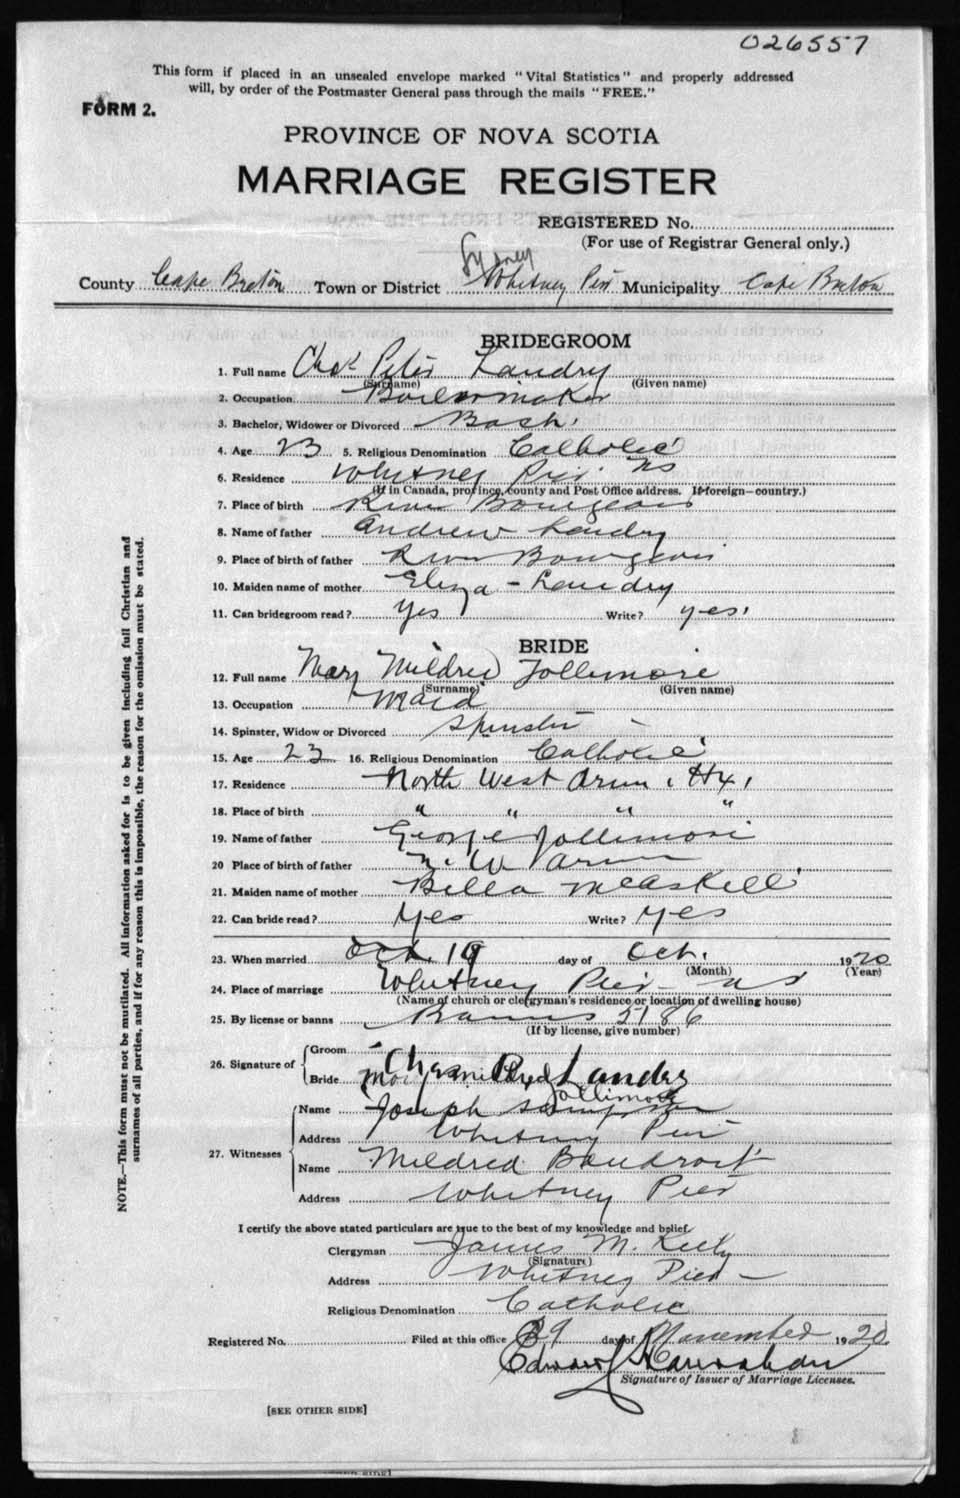 026557
This form if placed in an unsealed envelope marked "Vital Statistics" and properly addressed
will, by order of the Postmaster General pass through the mails "FREE."
FORM 2.
PROVINCE OF NOVA SCOTIA
MARRIAGE REGISTER
REGISTERED No.
(For use of Registrar General only.)
Sydney
County Cape Breton Town or District Whitney Pier Municipality Cape Breton
BRIDEGROOM
1. Full name Chas Peter Landry
(Surname) (Given name)
2. Occupation Boilermaker
3. Bachelor, Widower or Divorced Bach.
4. Age 23 5. Religious Denomination Catholic
6. Residence Whitney Pier NS
(If in Canada, province, county and Post Office address. If foreign—country.)
7. Place of birth River Bourgeois
8. Name of father Andrew Landry
9. Place of birth of father River Bourgeois
10. Maiden name of mother Eliza - Landry
11. Can bridegroom read? Yes Write? yes.
BRIDE
12. Full name Mary Mildred Jollimore
(Surname) (Given name)
13. Occupation Maid
14. Spinster, Widow or Divorced Spinster -
15. Age 23 16. Religious Denomination Catholic
17. Residence North West Arm, Hx,
18. Place of birth " " " "
19. Name of father George Jollimore
20 Place of birth of father N. W Arm
21. Maiden name of mother Bella McAskell
22. Can bride read? Yes Write? Yes
23. When married Oct. 19 day of Oct. 1920
(Month) (Year)
24. Place of marriage Whitney Pier - N S
(Name of church or clergyman's residence or location of dwelling house)
25. By license or banns Banns 5186
(If by license, give number)
26. Signature of
Groom Chas P. Landry
Bride Mary Mildred Jollimore
27. Witnesses
Name Joseph Sampson
Address Whitney Pier
Name Mildred Boudroit
Address Whitney Pier
I certify the above stated particulars are true to the best of my knowledge and belief.
Clergyman James M. Kiely
(Signature)
Address Whitney Pier -
Religious Denomination Catholic
Registered No. Filed at this office 29 day of November 1920.
Edward
Signature of Issuer of Marriage Licenses.
[SEE OTHER SIDE]
NOTE.—This form must not be mutilated. All information asked for is to be given including full Christian and
surnames of all parties, and if for any reason this is impossible, the reason for the omission must be stated.